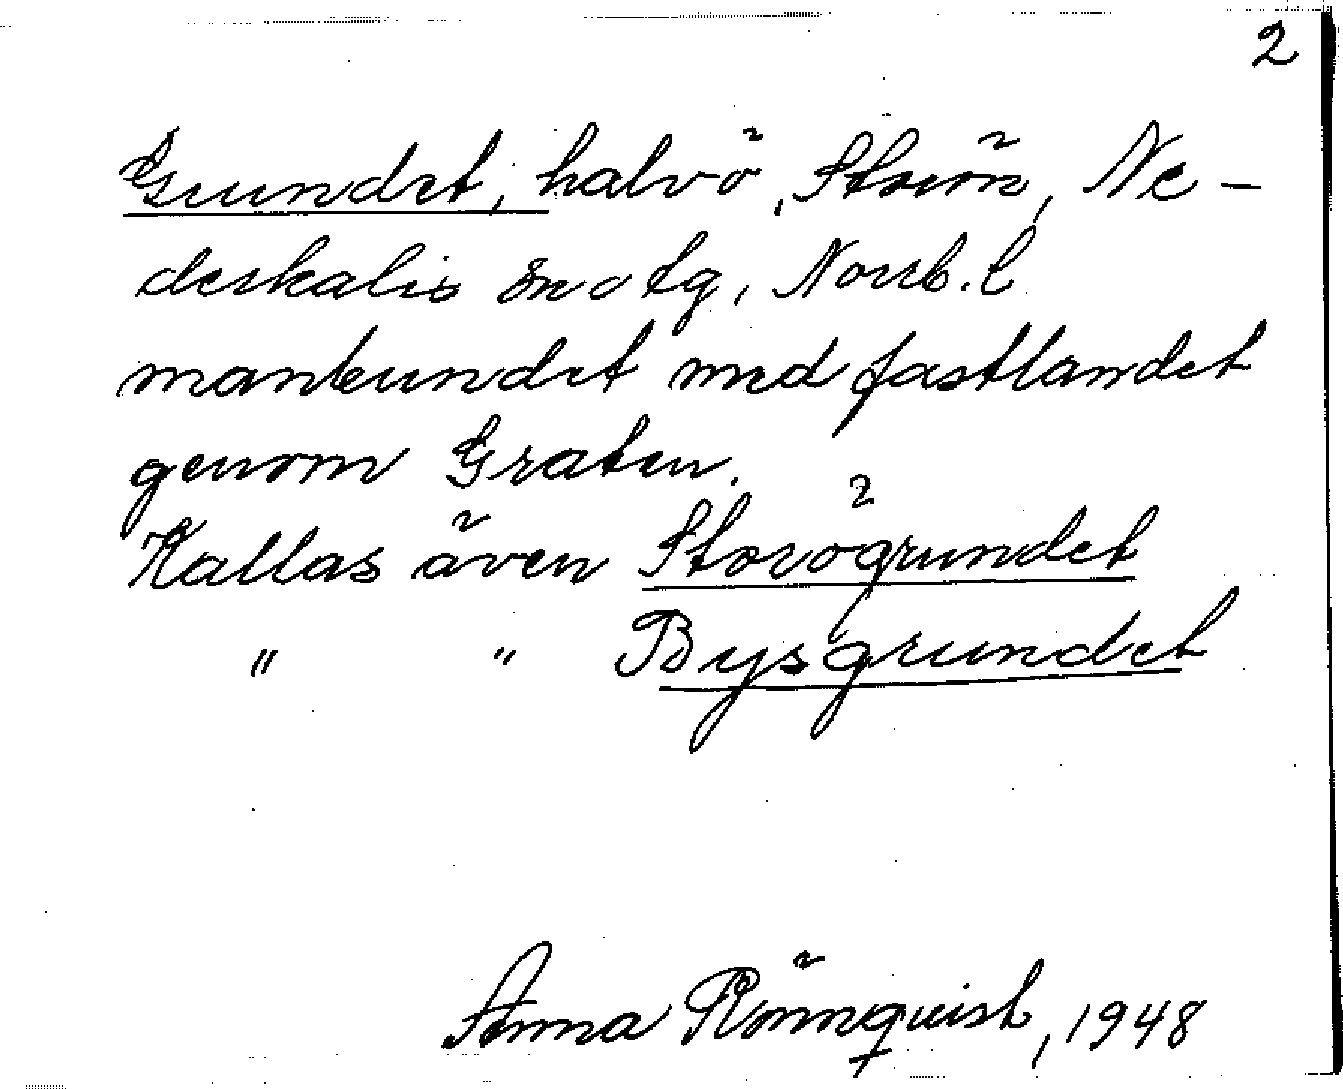 2
Grundet, halvö, Storön, Ne-
derkalix sn o tg, Norrb. l
manbundet med fastlandet
genom Graten.
Kallas även Storögrundet
" " Bysgrundet
Anna Rönnquist, 1948